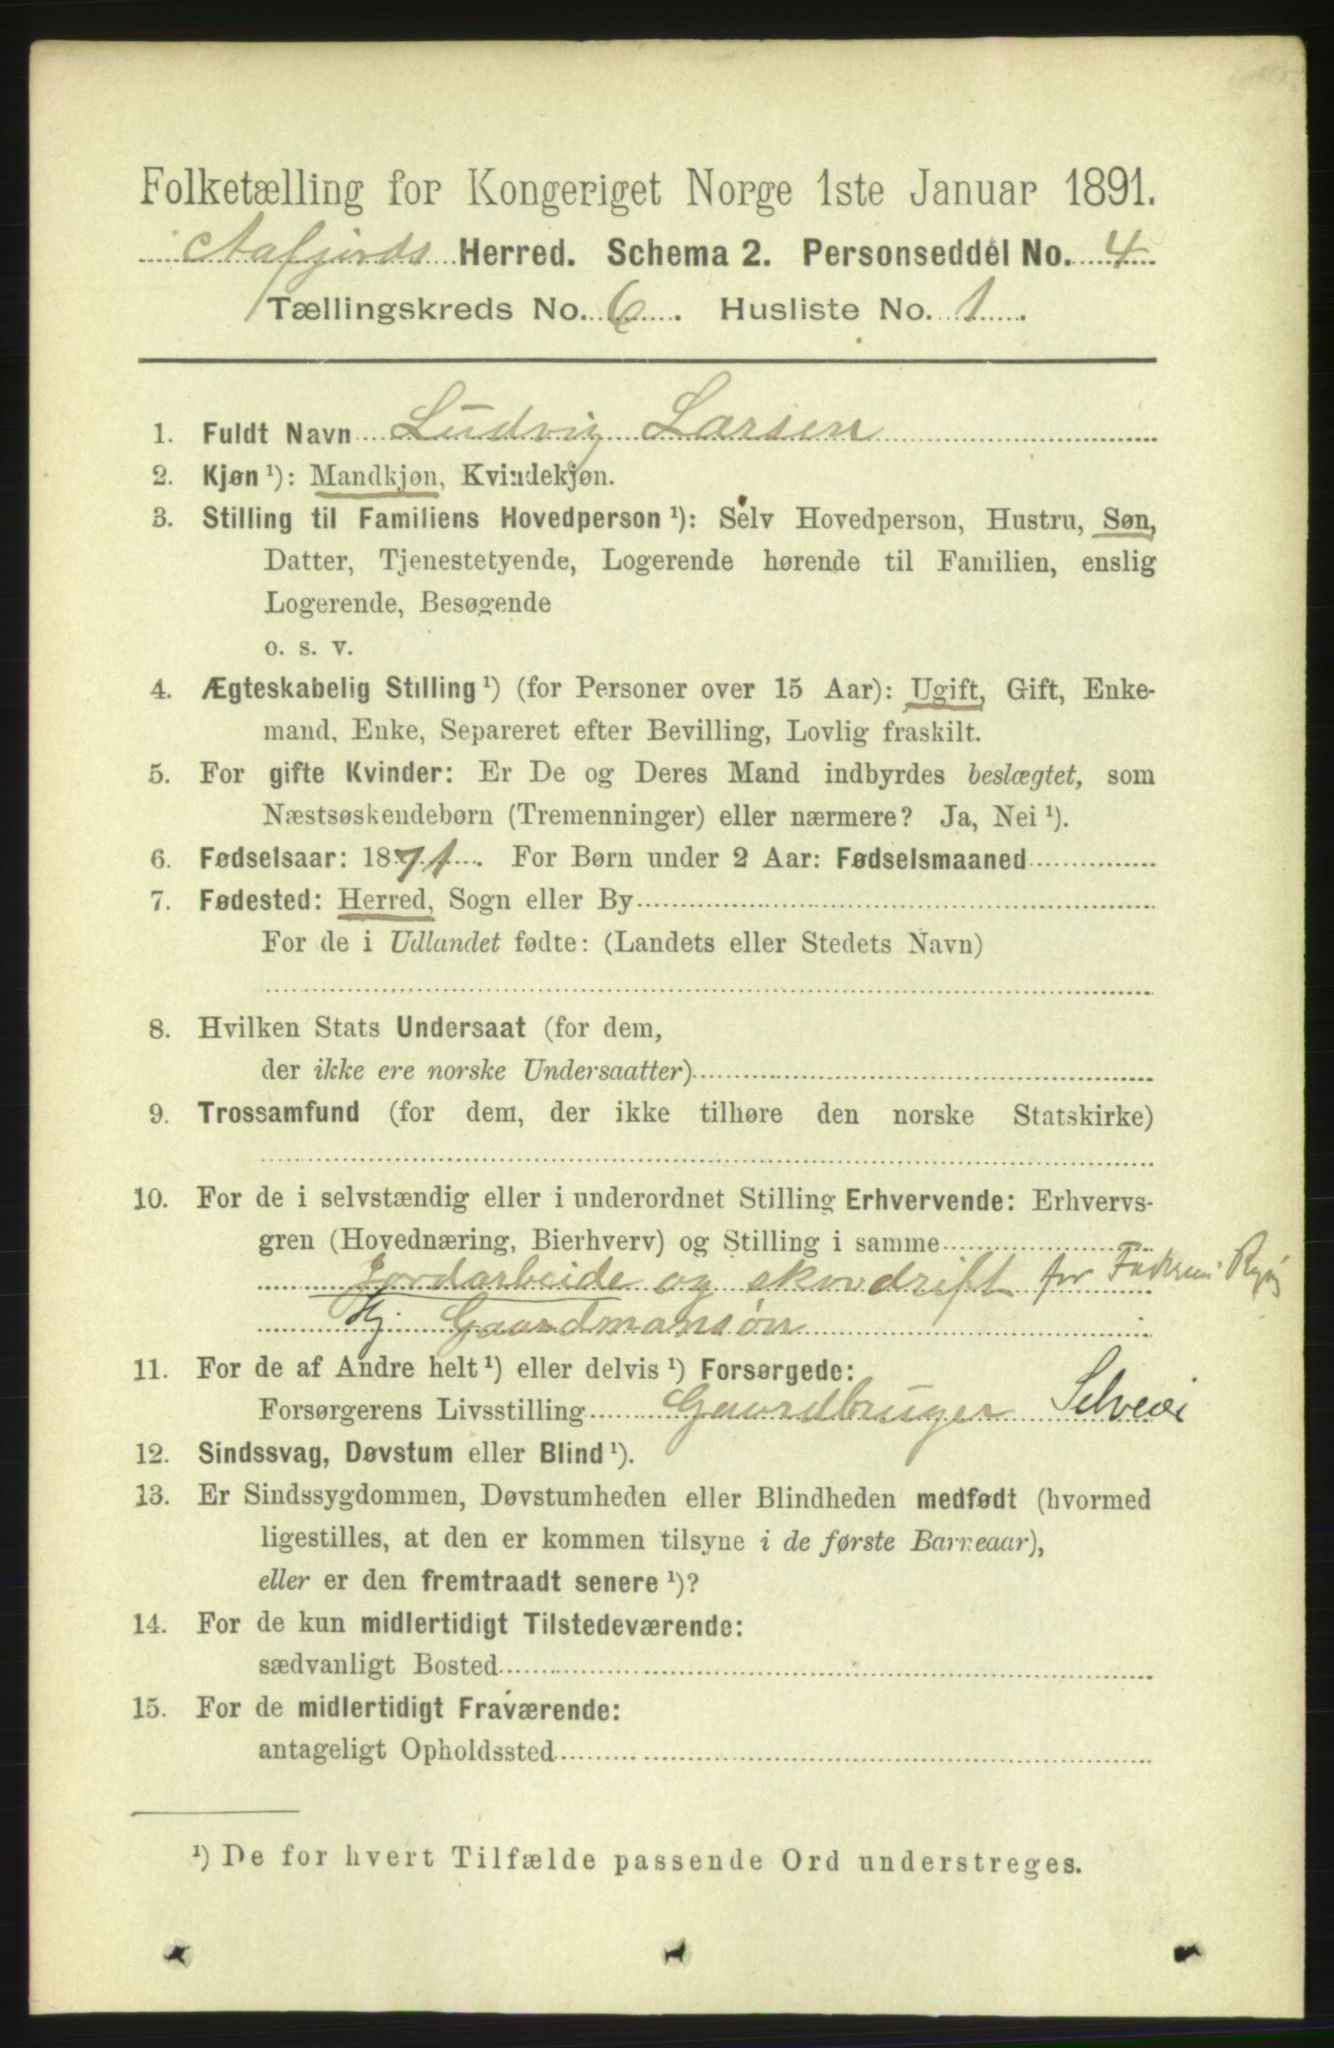 Folketælling for Kongeriget Norge 1ste Januar 1891.
Aafjords Herred. Schema 2. Personseddel No. 4
Tællingskreds No. 6. Husliste No. 1.
1. Fuldt Navn Ludvig Larsen
2. Kjøn ¹): Mandkjøn, Kvindekjøn.
3. Stilling til Familiens Hovedperson ¹): Selv Hovedperson, Hustru, Søn,
Datter, Tjenestetyende, Logerende hørende til Familien, enslig
Logerende, Besøgende
o. s. v.
4. Ægteskabelig Stilling ¹) (for Personer over 15 Aar): Ugift, Gift, Enke-
mand, Enke, Separeret efter Bevilling, Lovlig fraskilt.
5. For gifte Kvinder: Er De og Deres Mand indbyrdes beslægtet, som
Næstsøskendebørn (Tremenninger) eller nærmere? Ja, Nei ¹).
6. Fødselsaar: 1871. For Børn under 2 Aar: Fødselsmaaned
7. Fødested: Herred, Sogn eller By
For de i Udlandet fødte: (Landets eller Stedets Navn)
8. Hvilken Stats Undersaat (for dem,
der ikke ere norske Undersaatter)
9. Trossamfund (for dem, der ikke tilhøre den norske Statskirke)
10. For de i selvstændig eller i underordnet Stilling Erhvervende: Erhvervs-
gren (Hovednæring, Bierhverv) og Stilling i samme
Jordarbeide og skovdrift for
Gaardmansøn
11. For de af Andre helt ¹) eller delvis ¹) Forsørgede:
Forsørgerens Livsstilling Gaardbruger Selveier
12. Sindssvag, Døvstum eller Blind ¹).
13. Er Sindssygdommen, Døvstumheden eller Blindheden medfødt (hvormed
ligestilles, at den er kommen tilsyne i de første Barneaar),
eller er den fremtraadt senere ¹)?
14. For de kun midlertidigt Tilstedeværende:
sædvanligt Bosted
15. For de midlertidigt Fraværende:
antageligt Opholdssted
¹) De for hvert Tilfælde passende Ord understreges.